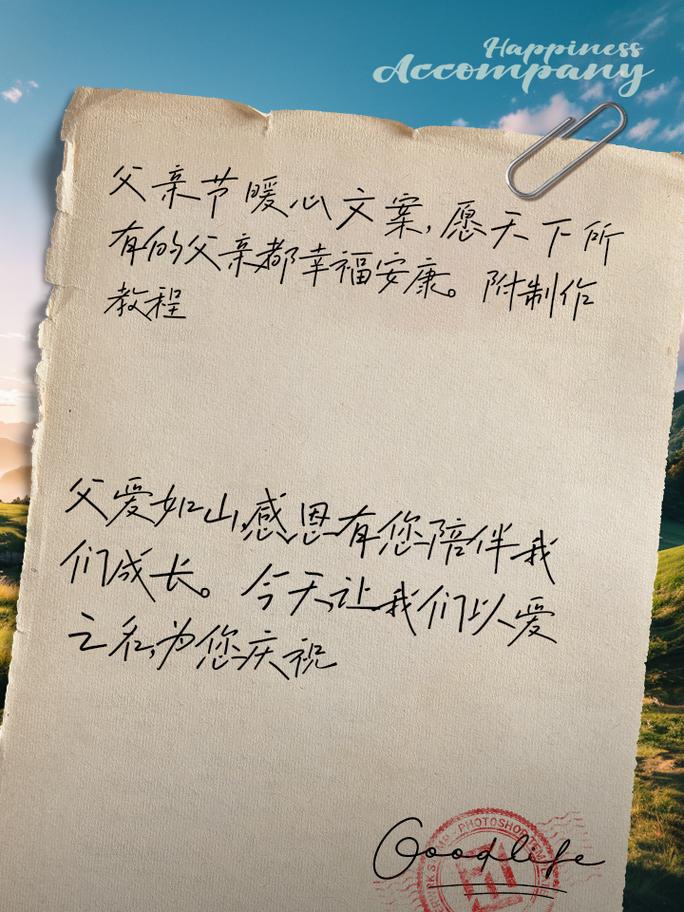 Happiness
Accompany
父亲节暖心文案,愿天下所
有的父亲都幸福安康。附制作
教程
父爱如山,感恩有您陪伴我
们成长。今天,让我们以爱
之名,为您庆祝
Goodlife
PHOTOSHOP